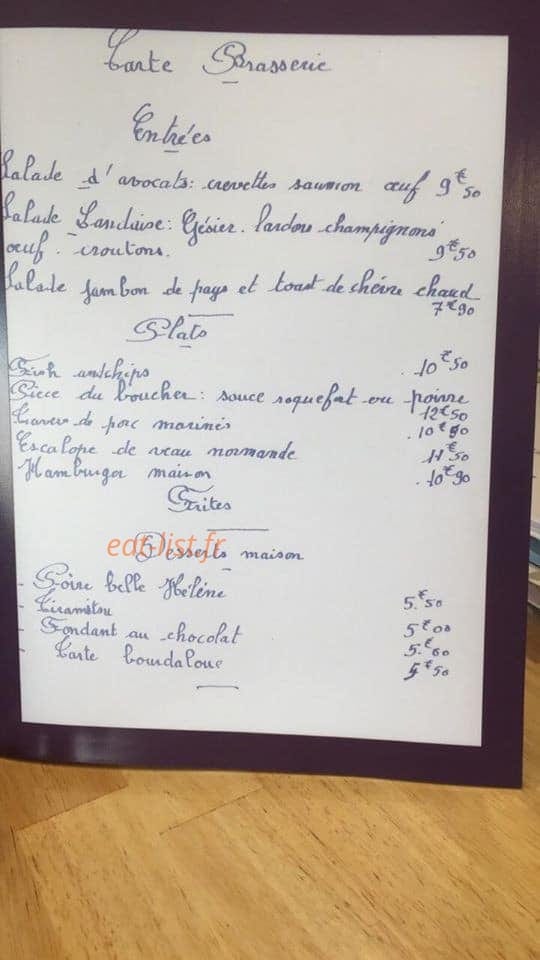 Carte Brasserie
Entrées
Salade d'avocats: crevettes saumon œuf 9€50
Salade Landaise: Gésier. lardons champignons
œuf. croutons. 9€50
Salade jambon de pays et toast de chèvre chaud
7€90
Plats
Fish and chips . 10€50
Pièce du boucher: sauce roquefort ou poivre
12€50
Travers de porc marinés . 10€90
Escalope de veau normande 11€50
Hamburger maison . 10€90
Frites
eat-list.fr
Desserts maison
- Poire belle Hélène 5.€50
- Tiramisou 5€00
- Fondant au chocolat 5.€60
- Tarte bourdaloue 4€50